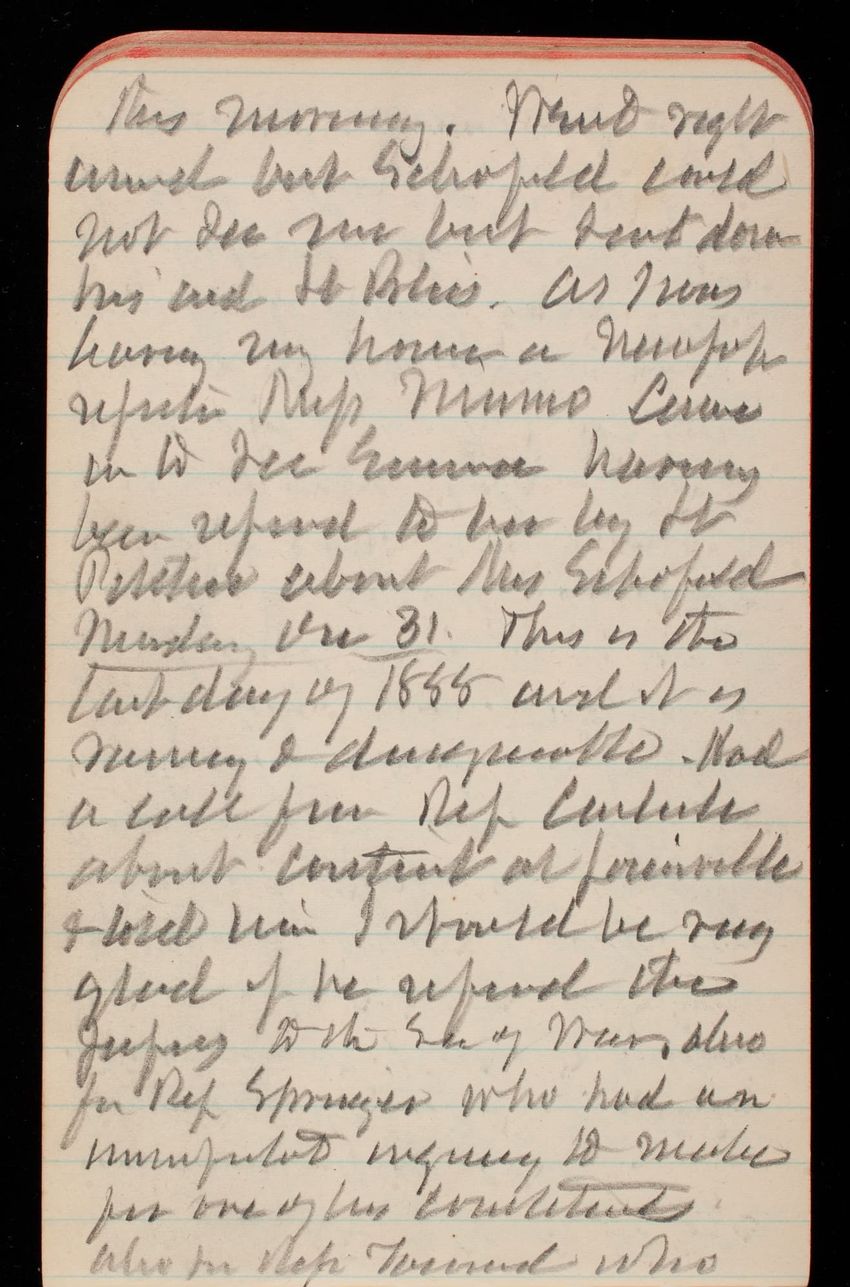 this morning. Went right
around but Schofield could
not see me but sent down
his aid Lt Bliss. As I was
leaving my house a newspaper
reporter Munro came
in to see Emma having
been referred to her by Lt
about Mrs Schofield
Monday Dec 31. This is the
last day of 1888 and it is
rainy & disagreeable. Had
a call from Rep
about at
& told him I should be very
glad if he referred the
papers to the Sec of War, also
for Rep Springer who had an
unimportant inquiry to make
for one of his constituents
also for Rep Townsend who